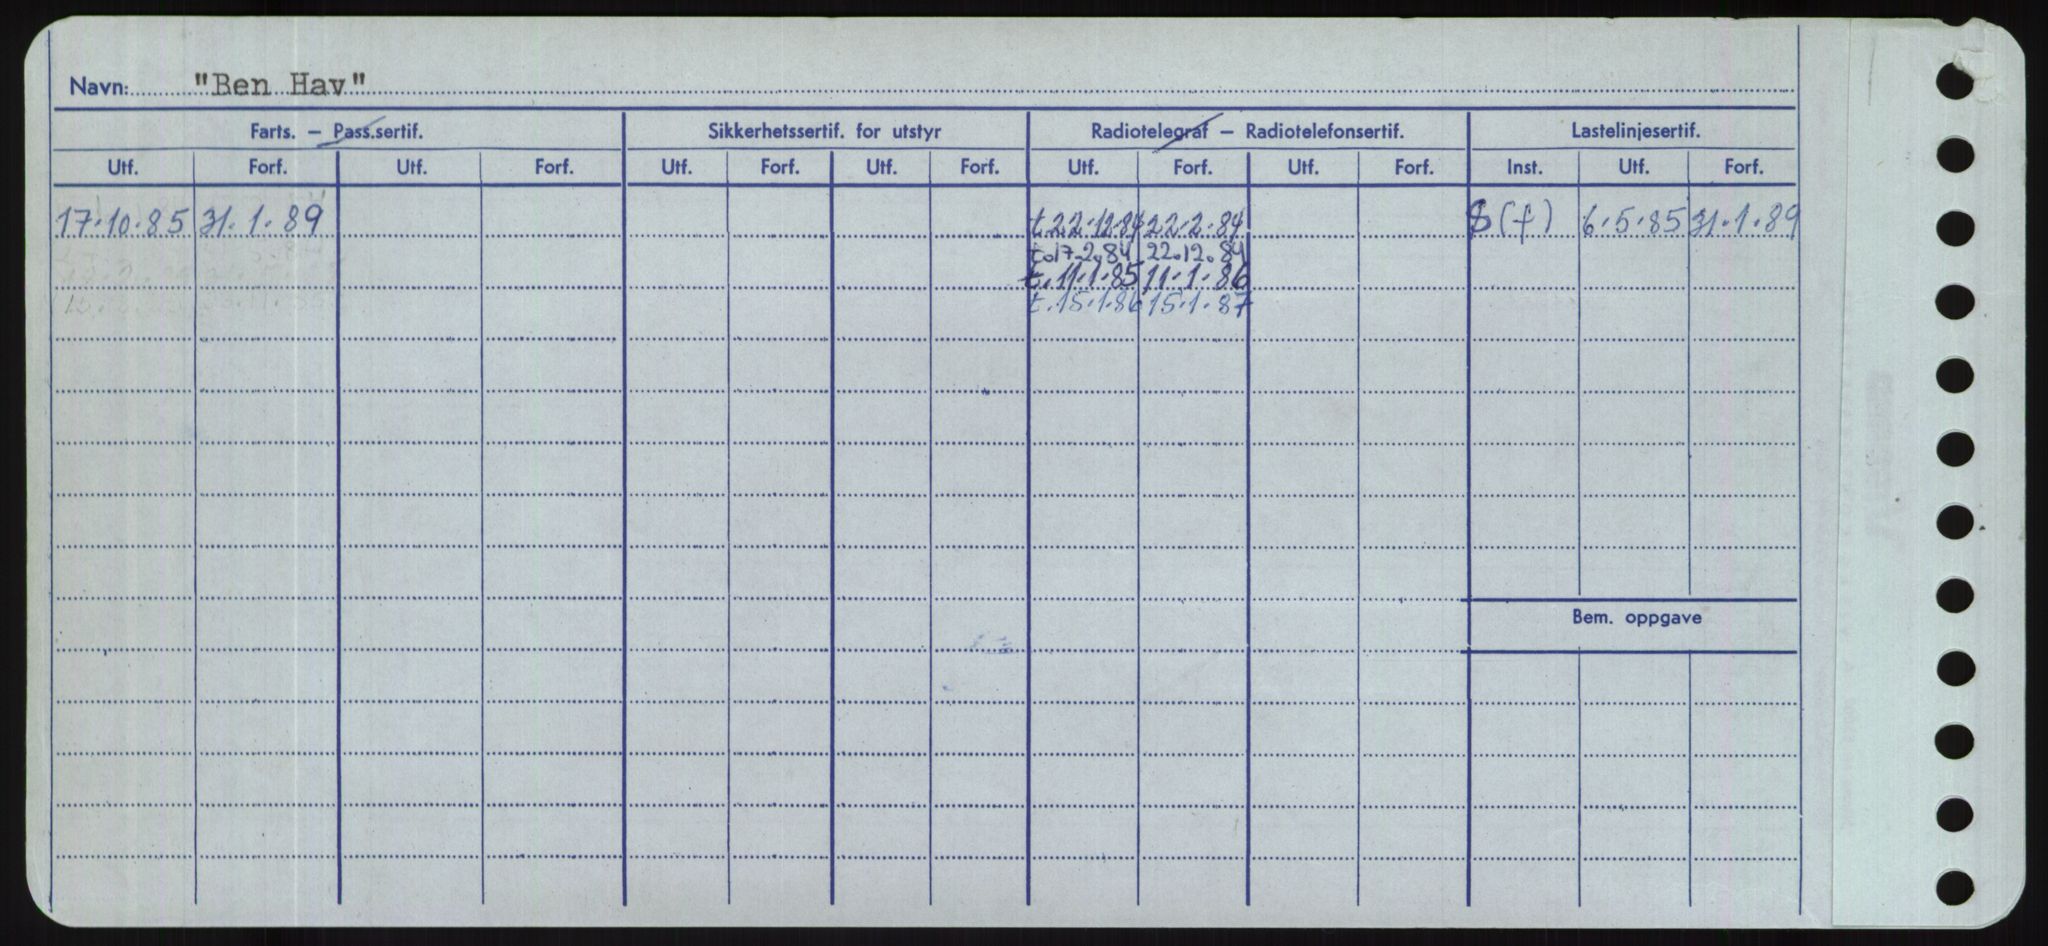 Navn: "Ben Hav"
Farts. – Pass.sertif. Sikkerhetssertif. for utstyr Radiotelegraf – Radiotelefonsertif. Lastelinjesertif.
Utf. Forf. Utf. Forf. Utf. Forf. Utf. Forf. Utf. Forf. Utf. Forf. Inst. Utf. Forf.
17.10.85 31.1.89 t.22.12.84 22.2.84 S(f) 6.5.85 31.1.89
t.17.2.84 22.12.84
t.11.1.85 11.1.86
t.15.1.86 15.1.87
Bem. oppgave